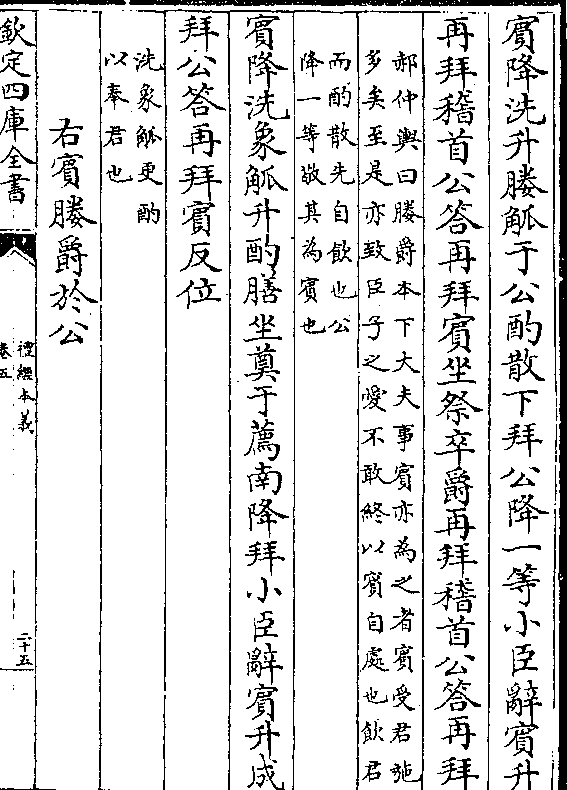 賓降洗升媵觚于公酌散下拜公降一等小臣辭賓升
再拜稽首公答再拜賓坐祭卒爵再拜稽首公答再拜
郝仲輿曰媵爵本下大夫事賓亦為之者賓受君施
多矣至是亦致臣子之愛不敢終以賓自處也飲君
而酌散先自飲也公
降一等敬其為賓也
賓降洗象觚升酌膳坐奠于薦南降拜小臣辭賓升成
拜公答再拜賓反位
洗象觚更酌
以奉君也
右賓媵爵於公
欽定四庫全書
禮經本義
卷五
二十五